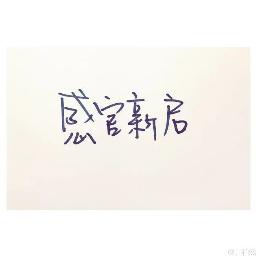 感官新启